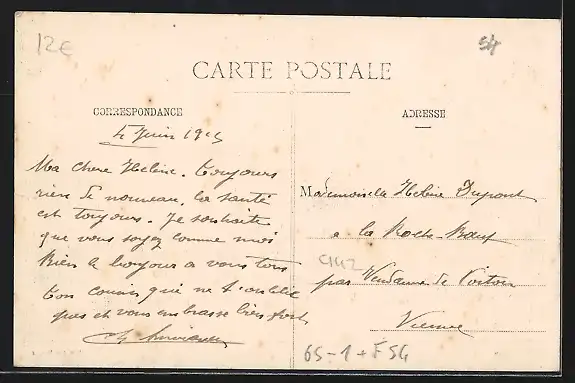 12€
54
CARTE POSTALE
CORRESPONDANCE
ADRESSE
4 Juin 1915
Ma chere Helene. toujours
rien de nouveau, la santé
est toujours. Je souhaite
que vous soyez comme moi
Rien le bonjour a vous tous
ton cousin qui ne t'oublie
pas et vous embrasse bien fort
Mademoiselle Helene Dupont
a la Roche
par Vendeuvre de Poitou
Vienne
65-1+F54